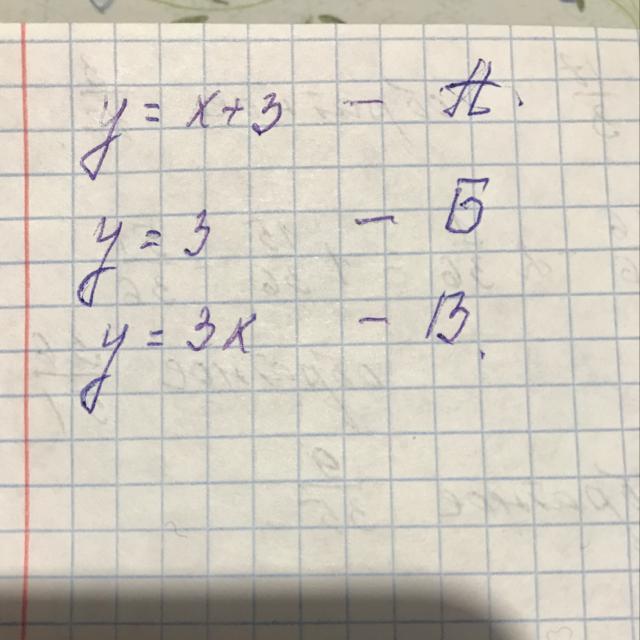 y = x + 3 – А.
y = 3 – Б
y = 3x – В.